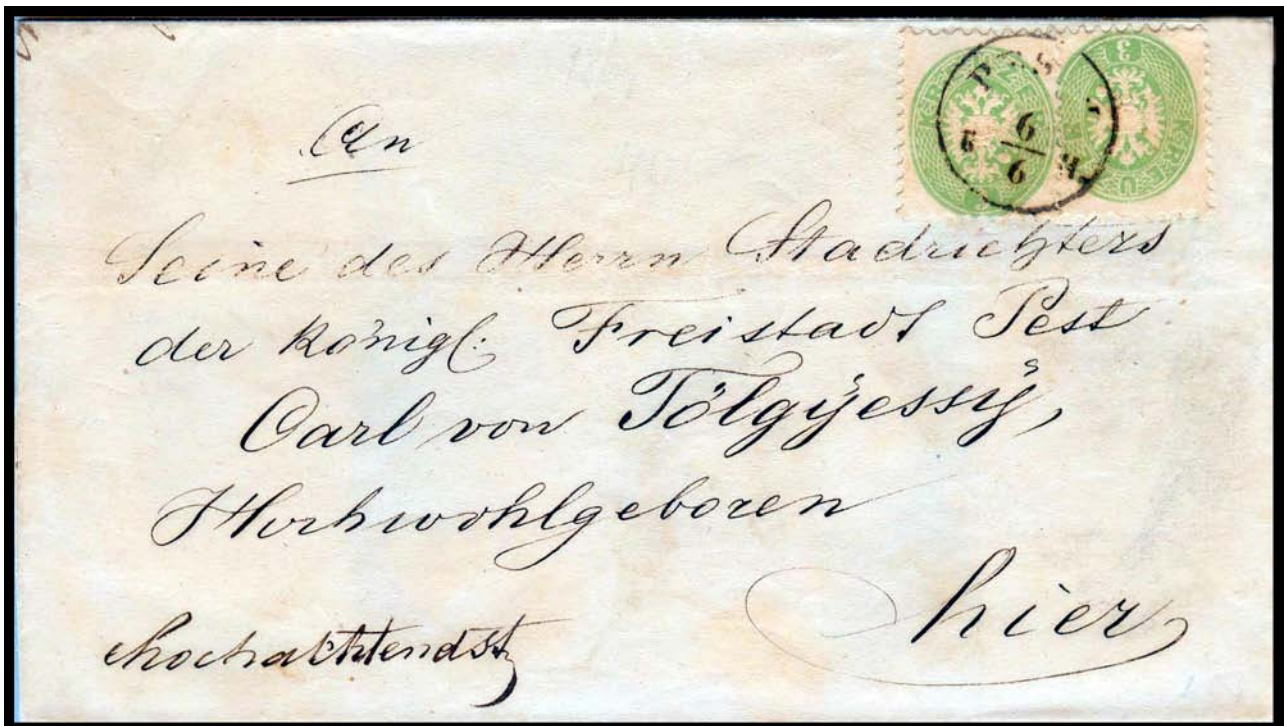 An
Seine des Herrn Stadrichters
der königl: Freistadt Pest
Carl von Tölgÿessÿ,
Hochwohlgeboren
hier
hochachtendst
6
6
3